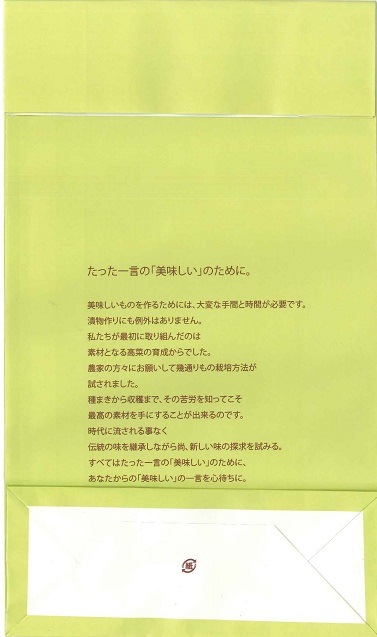 たった一言の「美味しい」のために。
美味しいものを作るためには、大変な手間と時間が必要です。
漬物作りにも例外はありません。
私たちが最初に取り組んだのは
素材となる高菜の育成からでした。
農家の方々にお願いして幾通りもの栽培方法が
試されました。
種まきから収穫まで、その苦労を知ってこそ
最高の素材を手にすることが出来るのです。
時代に流される事なく
伝統の味を継承しながら尚、新しい味の探求を試みる。
すべてはたった一言の「美味しい」のために、
あなたからの「美味しい」の一言を心待ちに。
紙